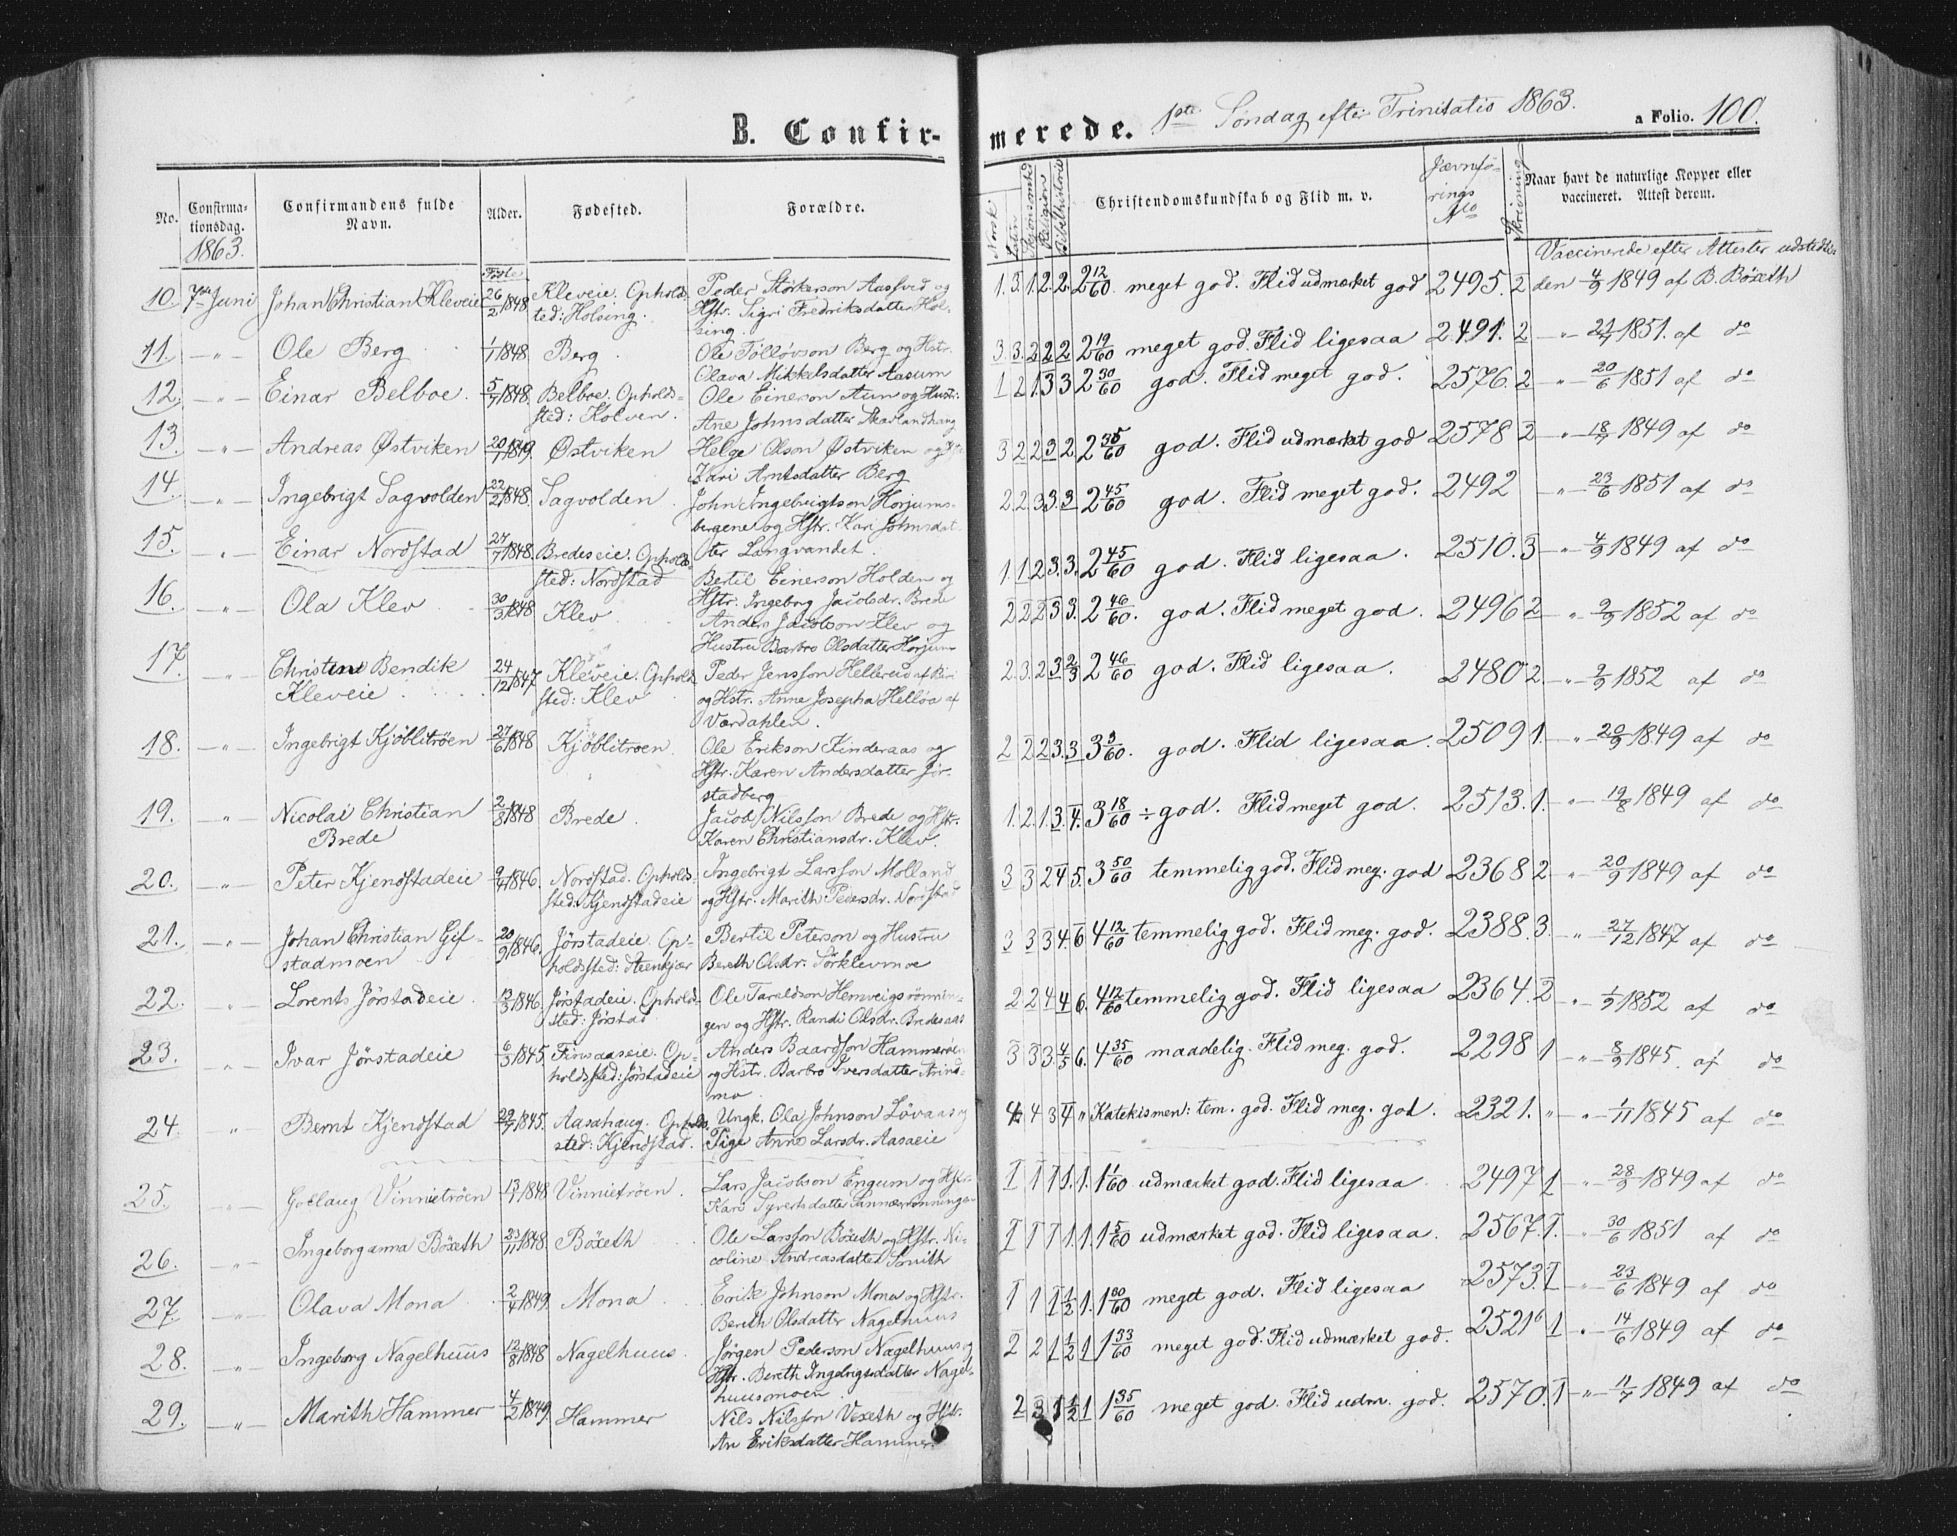 B. Confir-
merede. 1ste Söndag efter Trinitatis 1863. a Folio. 100.
No. Confirma-tionsdag. 1863. Confirmandens fulde Navn. Alder. Fødte Fødested. Forældre.
Norsk Religion Bibelhistorie Christendomskundskab og Flid m. v. Jævnfö-rings No Skrivning Naar havt de naturlige Kopper eller vaccineret. Attest derom.
Vaccinerede efter Attester udstedte
10. 7de Juni Johan Christian Kleveie 26/2 1848 Kleveie. Ophold- Peder Störkerson Aasfved og
sted: Holsing. Hstr. Sigri Fredriksdatter Hol-
sing.
1. 3. 1. 2. 2. 2 12/60 meget god. Flid udmærket god 2495. 2 den 4/9 1849 af B. Böxeth
11. -"- Ole Berg 1/1 1848 Berg Ole Tollövson Berg og Hstr.
Olava Mikkelsdatter Aasum
3. 3. 2 2 2 2 19/60 meget god. Flid ligesaa 2491. 2 -"- 21/7 1851. af do
12. -"- Einar Belboe. 5/7 1848. Belboe. Ophold- Ole Einerson Aun og Hustr:
sted: Kolven. Ane Johnsdatter Skavlandhaug
1 2 1 3 3 2 30/60 god. Flid meget god. 2576. 2 -"- 20/6 1851 af do
13. -"- Andreas Østviken 20/1 1849. Østviken Helge Olson Østviken og
Kari Arntsdatter Berg
3 2 2 3 2. 2 35/60 god. Flid udmærket god 2578 2 -"- 18/7 1849 af do
14. -"- Ingebrigt Sagvolden 22/2 1848. Sagvolden John Ingebrigtson Horjums-
bergene og Hstr. Kari Johnsdat-
ter Langvandet.
2. 2. 3 3. 3 2 45/60 god. Flid meget god. 2492 -"- 23/6 1851 af do
15. -"- Einar Nordstad 27/7 1848. Bredeseie. Ophold-
sted: Nordstad Bertil Einerson Holden og
Hstr: Ingeborg Jacobsdr. Brede
1. 1. 2 3. 3. 2 45/60 god. Flid ligesaa. 2510. 3 -"- 4/9 1849 af do
16. -"- Ola Klev 30/3 1848 Klev Anders Jacobson Klev og
Hustru Barbro Olsdatter Horjum
2 2 2 3 3. 2 46/60. god. Flid meget god. 2496 2 " 2/9 1852 af do
17. " Christian Bendik 24/12 1847 Kleveie. Ophold- Peder Jensson Hellerud af Biri
Kleveie sted: Klev og Hstr. Anne Josepha Helloa af
Værdahlen.
2. 3. 2 3 2/3 2 46/60 god. Flid ligesaa. 2480 2. -"- 2/9 1852 af do
18. -"- Ingebrigt Kjöblitröen 27/6 1848 Kjöblitroen Ole Erikson Kinderaas og
Hstr. Karen Andersdatter Jör-
stadberg
2 2 2 3. 3 3 3/60. god. Flid ligesaa. 2509 1. -"- 20/9 1849 af do
19. -"- Nicolai Christian 2/3 1848 Brede. Jacob Nilsson Brede og Hstr.
Brede Karen Christiansdr. Klev.
1. 2. 1. 3. 4. 3 18/60 ÷ god. Flid meget god. 2513. 1. -"- 19/8 1849 af do
20. -"- Peter Kjendstadeie 9/4 1846. Nordstad. Ophold- Ingebrigt Larsson Molland
sted: Kjendstadeie og Hstr. Marith Pedersdr. Nordstad
3 3 2 4 5. 3 50/60 temmelig god. Flid meg. god 2368 2 -"- 20/9 1849 af do
21. -"- Johan Christian Gif- 20/9 1846. Jörstadeie. Op- Bertil Peterson og Hustru
stadmoen holdsted: Steenkjær Bereth Olsdr. Sörklevmoe
3 3 3 4. 6 4 12/60 temmelig god. Flid meg. god. 2388. 3. " 27/12 1847 af do
22. " Lorents Jörstadeie. 13/3 1846. Jörstadeie. Ophold- Ole Taraldson Hemveigsrönnin-
sted: Jörstad gen og Hstr. Randi Olsdr. Bredesaas
2 2 4 4 6. 4 12/60 temmelig god. Flid ligesaa 2364. 2 " 1/9 1852 af do
23. " Ivar Jörstadeie 6/3 1845. Finsaaseie. Op- Anders Baardson Hammeröen
holdsted: Jörstadeie og Hstr. Barbro Iversdatter Arind-
mo.
3 3 3 4/5 6. 4 35/60 maadelig. Flid meg. god. 2298 1 " 8/9 1845. af do
24. " Bernt Kjendstad 29/7 1845. Aasahaug. Ophold- Ungk. Ola Johnson Lövaas og
sted: Kjendstad. Pige Anne Larsdr. Aasaeie
4 4 3 4 " Katekismen: tem. god. Flid meg. god. 2321. " " 1/11 1845 af do
25. -"- Goelaug Vinnietröen 13/1 1848 Vinnietröen. Lars Jacobson Engum og Hstr.
Kari Syvertsdatter Sannærrönningen
1 1 1 1. 1. 1 1/60 udmærket god. Flid ligesaa 2497 1 " 28/9 1849 af do
26. -"- Ingeborganna Böxeth 23/11 1848 Böxeth Ole Larsson Böxeth og Hstr. Ni-
coline Andreasdatter Smith
1 1 1 1. 1. 1 5/60 udmærket god. Flid ligesaa. 2567. 1. " 30/6 1851 af do
27. -"- Olava Mona 2/4 1849. Mona Erik Johnson Mona og Hstr.
Bereth Olsdatter Nagelhuus
1 1 1 1/2 1. 1 meget god. Flid ligesaa 2573. 1 " 23/6 1849 af do
28. -"- Ingeborg Nagelhuus 12/8 1848 Nagelhuus. Jörgen Pederson Nagelhuus og
Hstr. Bereth Ingebrigtsdatter Nagel-
huusmoen
2 2 1 1/2 1 1 33/60 meget god. Flid udmærket god. 2521 b 1 " 14/6 1849 af do
29. -"- Marith Hammer 4/2 1849. Hammer Nils Nilsson Vexeth og Hstr.
An Eriksdatter Hammer.
2 3 1 1/2 1 1 35/60 meget god. Flid udm. god. 2570. 1 -"- 11/7 1849 af do